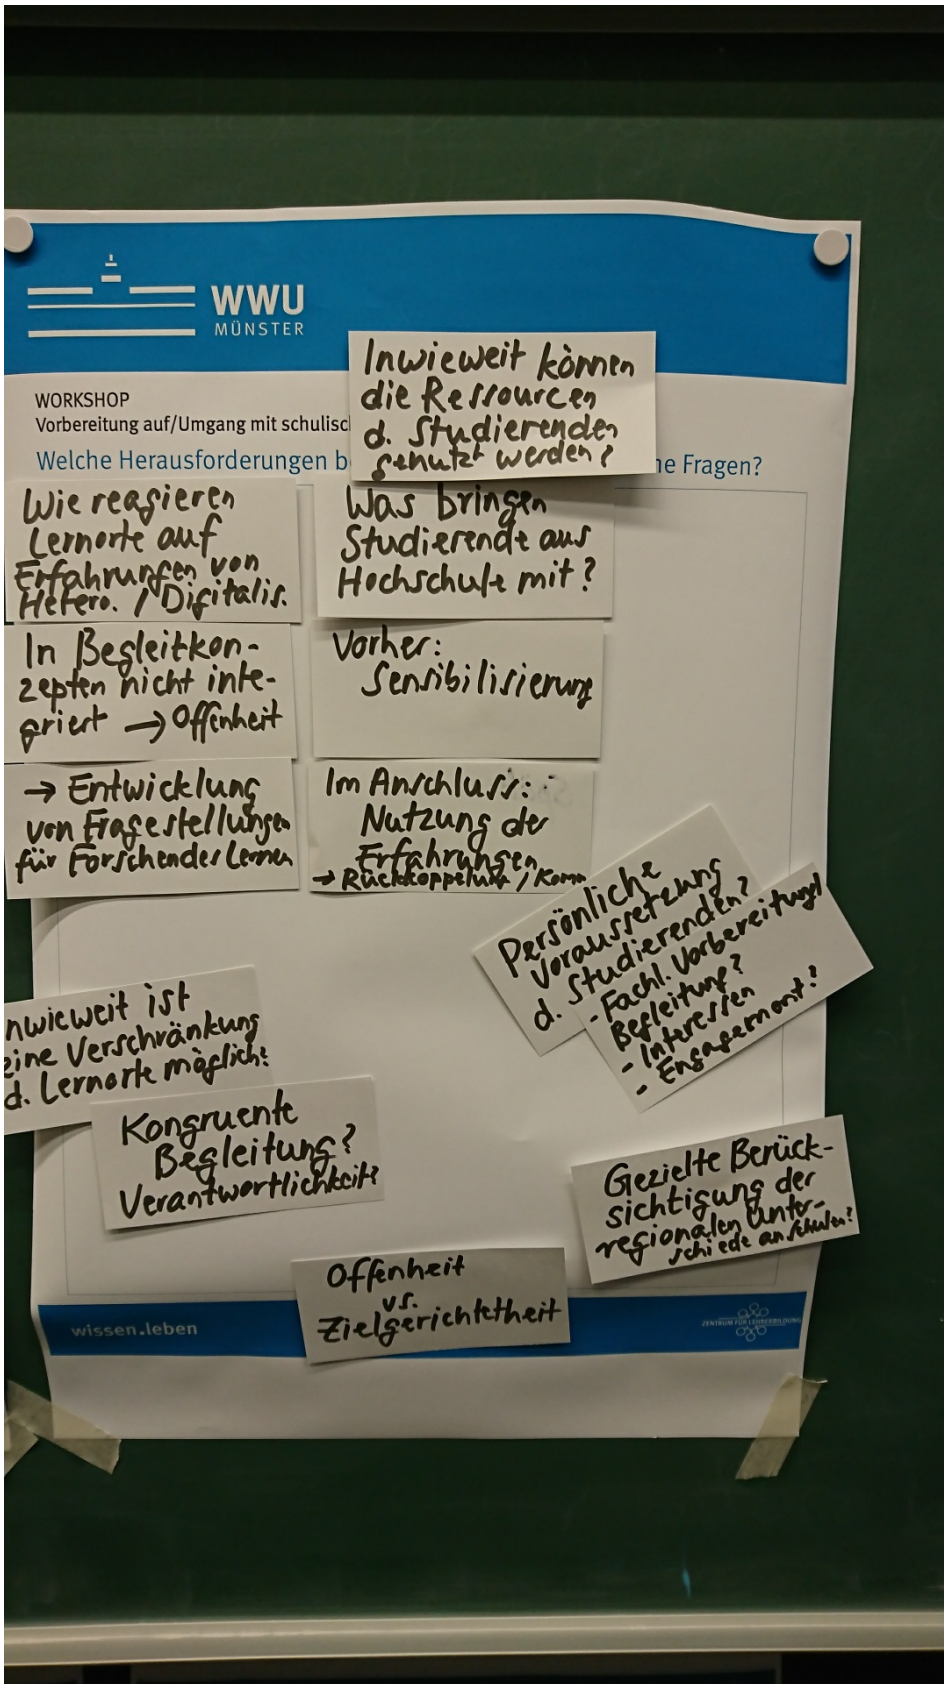 WWU
MÜNSTER
WORKSHOP
Vorbereitung auf/Umgang mit
Welche Herausforderungen
Fragen?
Inwieweit können
die Ressourcen
d. Studierenden
schutzt werden?
Wie reagieren
Lernorte auf
Erfahrungen von
Hetero. / Digitalis.
Was bringen
Studierende aus
Hochschule mit?
In Begleitkon-
zepten nicht inte-
griert → Offenheit
Vorher:
Sensibilisierung
→ Entwicklung
von Fragestellungen
für Forschendes Lernen
Im Anschluss:
Nutzung der
Erfahrungen
→ Rückkoppelung / Komm
Persönliche
Voraussetzung
d. Studierenden?
- Fachl. Vorbereitung/
Begleitung?
- Interessen
- Engagement?
nwieweit ist
eine Verschränkung
d. Lernorte möglich?
Kongruente
Begleitung?
Verantwortlichkeit?
Gezielte Berück-
sichtigung der
regionalen Unter-
schiede an Schulen?
Offenheit
vs.
Zielgerichtetheit
wissen.leben
ZENTRUM FÜR LEHRERBILDUNG